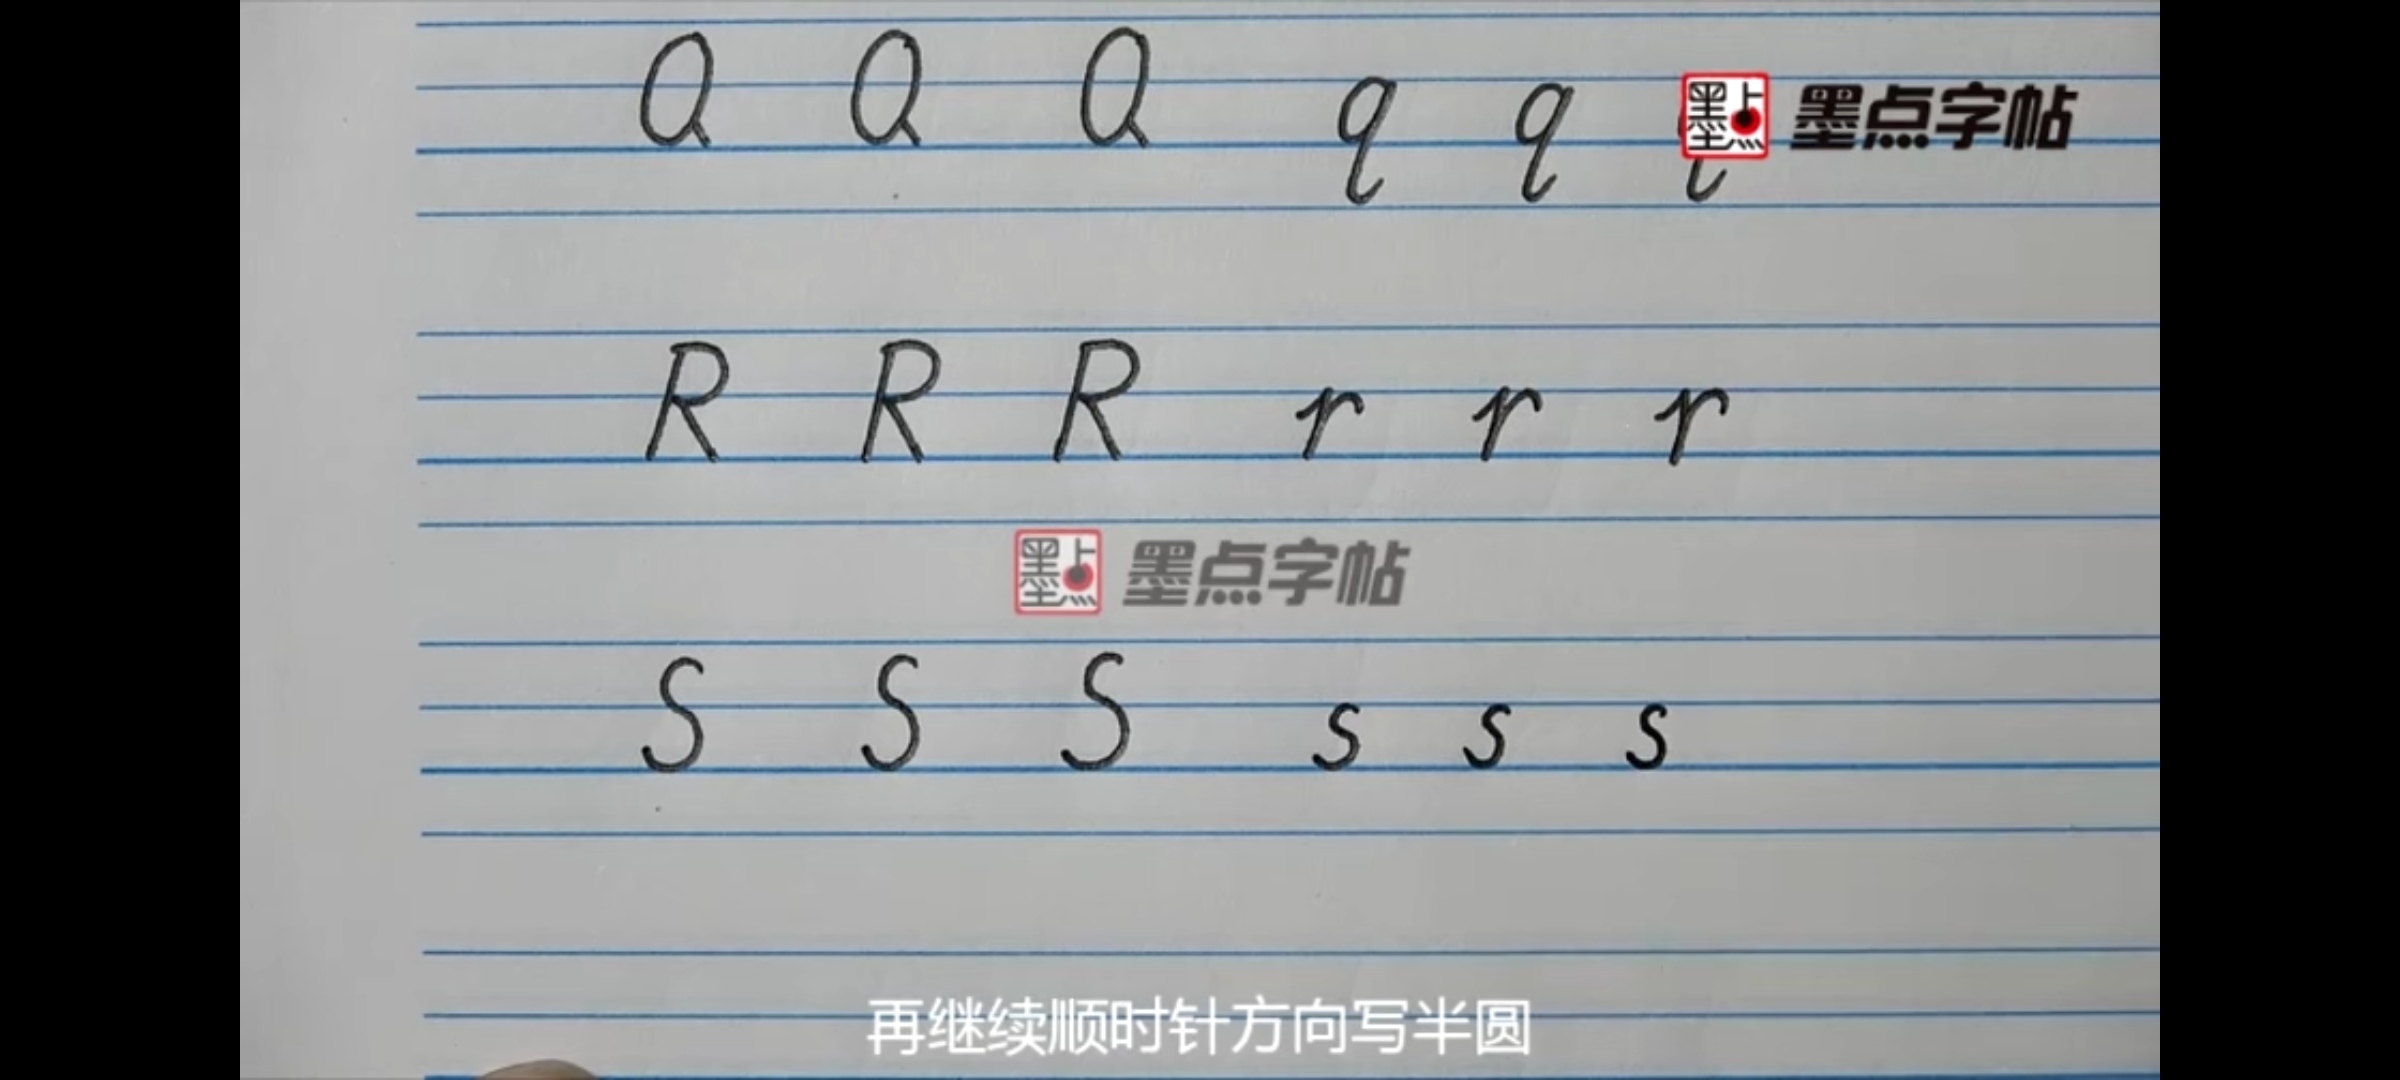 Q Q Q q q q 墨点 墨点字帖
R R R r r r
墨点 墨点字帖
S S S s s s
再继续顺时针方向写半圆